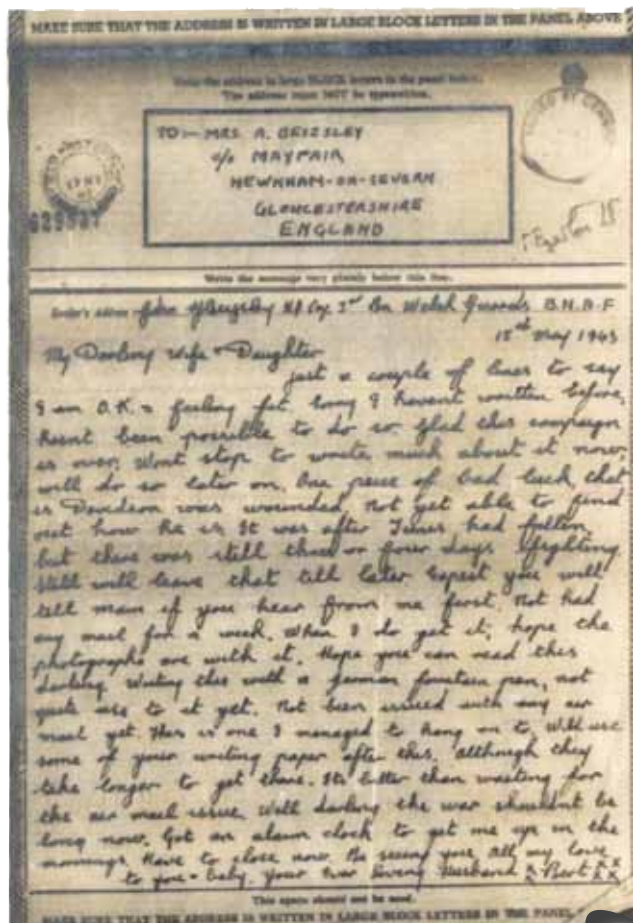 MAKE SURE THAT THE ADDRESS IS WRITTEN IN LARGE BLOCK LETTERS IN THE PANEL ABOVE
Write the address in large BLOCK letters in the panel below.
The address must NOT be typewritten.
TO:- MRS A. BEIZSLEY
c/o MAYFAIR
NEWNHAM-ON-SEVERN
GLOUCESTERSHIRE
ENGLAND
Write the message very plainly below this line.
Sender's address Bn Welsh Guards B.N.A.F
May 1943
My Darling Wife & Daughter
just a couple of lines to say
I am O.K. & feeling fit. Sorry I havent written before,
hasnt been possible to do so. glad this campaign
is over. Wont stop to write much about it now,
will do so later on. One piece of bad luck, that
is Davidson was wounded. Not yet able to find
out how he is It was after Tunis had fallen
but there was still three or four days fighting.
Still will leave that till later Expect you will
tell mam if you hear from me first. Not had
any mail for a week. When I do get it, hope the
photographs are with it. Hope you can read this
darling. Writing this with a german fountain pen, not
quite use to it yet. Not been issued with any air
mail yet. This is one I managed to hang on to. Will use
some of your writing paper after this. Although they
take longer to get there. Its better than waiting for
the air mail issue. Well darling the war shouldn't be
long now. Got an alarm clock to get me up in the
mornings. Have to close now. Be seeing you. All my love
to you & baby. your ever loving Husband Bert xx
This space should not be used.
MAKE SURE THAT THE ADDRESS IS WRITTEN IN LARGE BLOCK LETTERS IN THE PANEL